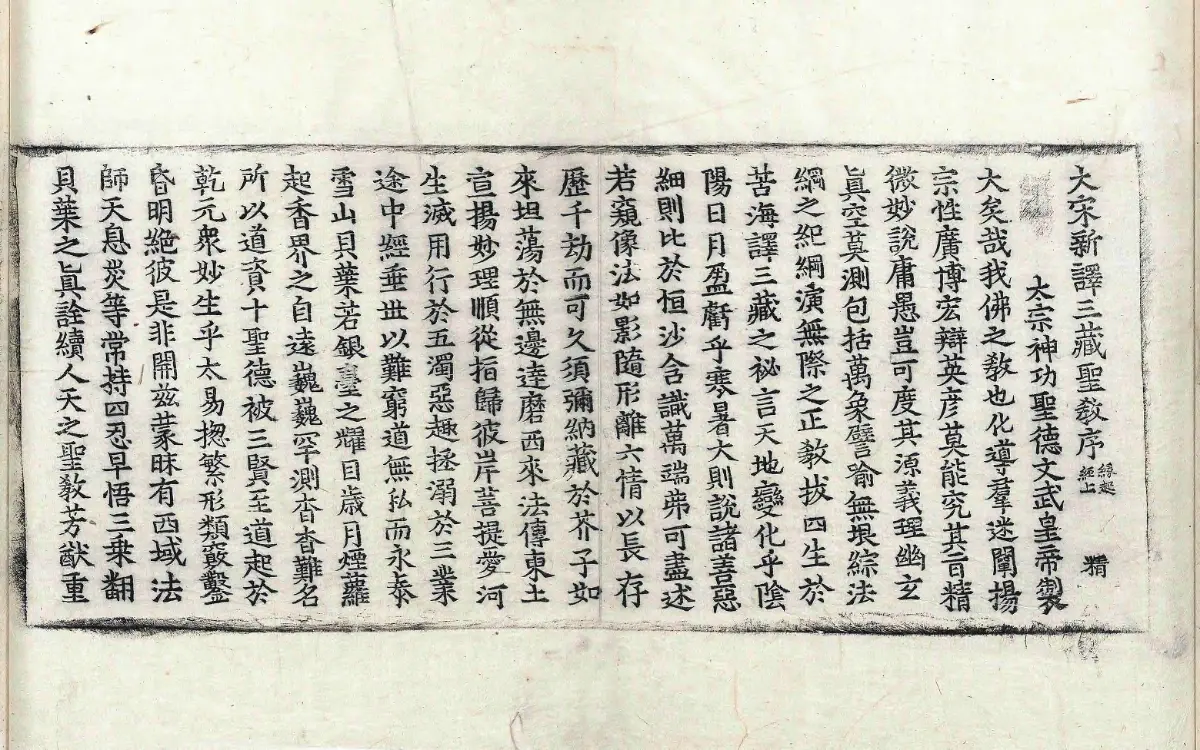 大宋新譯三藏聖教序 緣起經上 精
太宗神功聖德文武皇帝製
大矣哉我佛之教也化導羣迷闡揚
宗性廣博宏辯英彦莫能究其旨精
微妙說庸愚豈可度其源義理幽玄
眞空莫測包括萬象譬喻無垠綜法
綱之紀綱演無際之正教拔四生於
苦海譯三藏之祕言天地變化乎陰
陽日月盈虧乎寒暑大則說諸善惡
細則比於恒沙含識萬端弗可盡述
若窺像法如影隨形離六情以長存
歷千劫而可久須彌納藏於芥子如
來坦蕩於無邊達磨西來法傳東土
宣揚妙理順從指歸彼岸菩提愛河
生滅用行於五濁惡趣拯溺於三業
途中經垂世以難窮道無私而永泰
雪山貝葉若銀臺之耀目歲月煙蘿
起香界之自遠巍巍罕測杳杳難名
所以道資十聖德被三賢至道起於
乾元衆妙生乎太易揔繁形類竅鑿
昏明絕彼是非開兹蒙昧有西域法
師天息灾等常持四忍早悟三乗翻
貝葉之眞詮續人天之聖教芳猷重